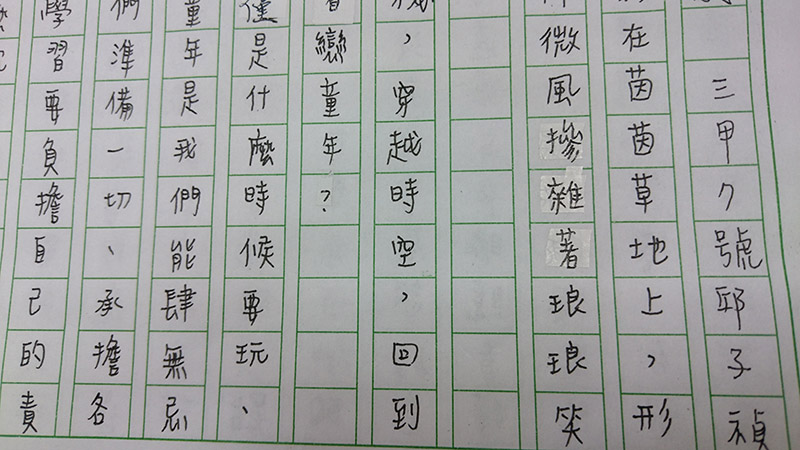 三甲7號邱子禎
在茵茵草地上，形
微風摻雜著琅琅笑
，穿越時空，回到
戀童年？
僅是什麼時候要玩、
童年是我們能肆無忌
們準備一切、承擔各
學習要負擔自己的責